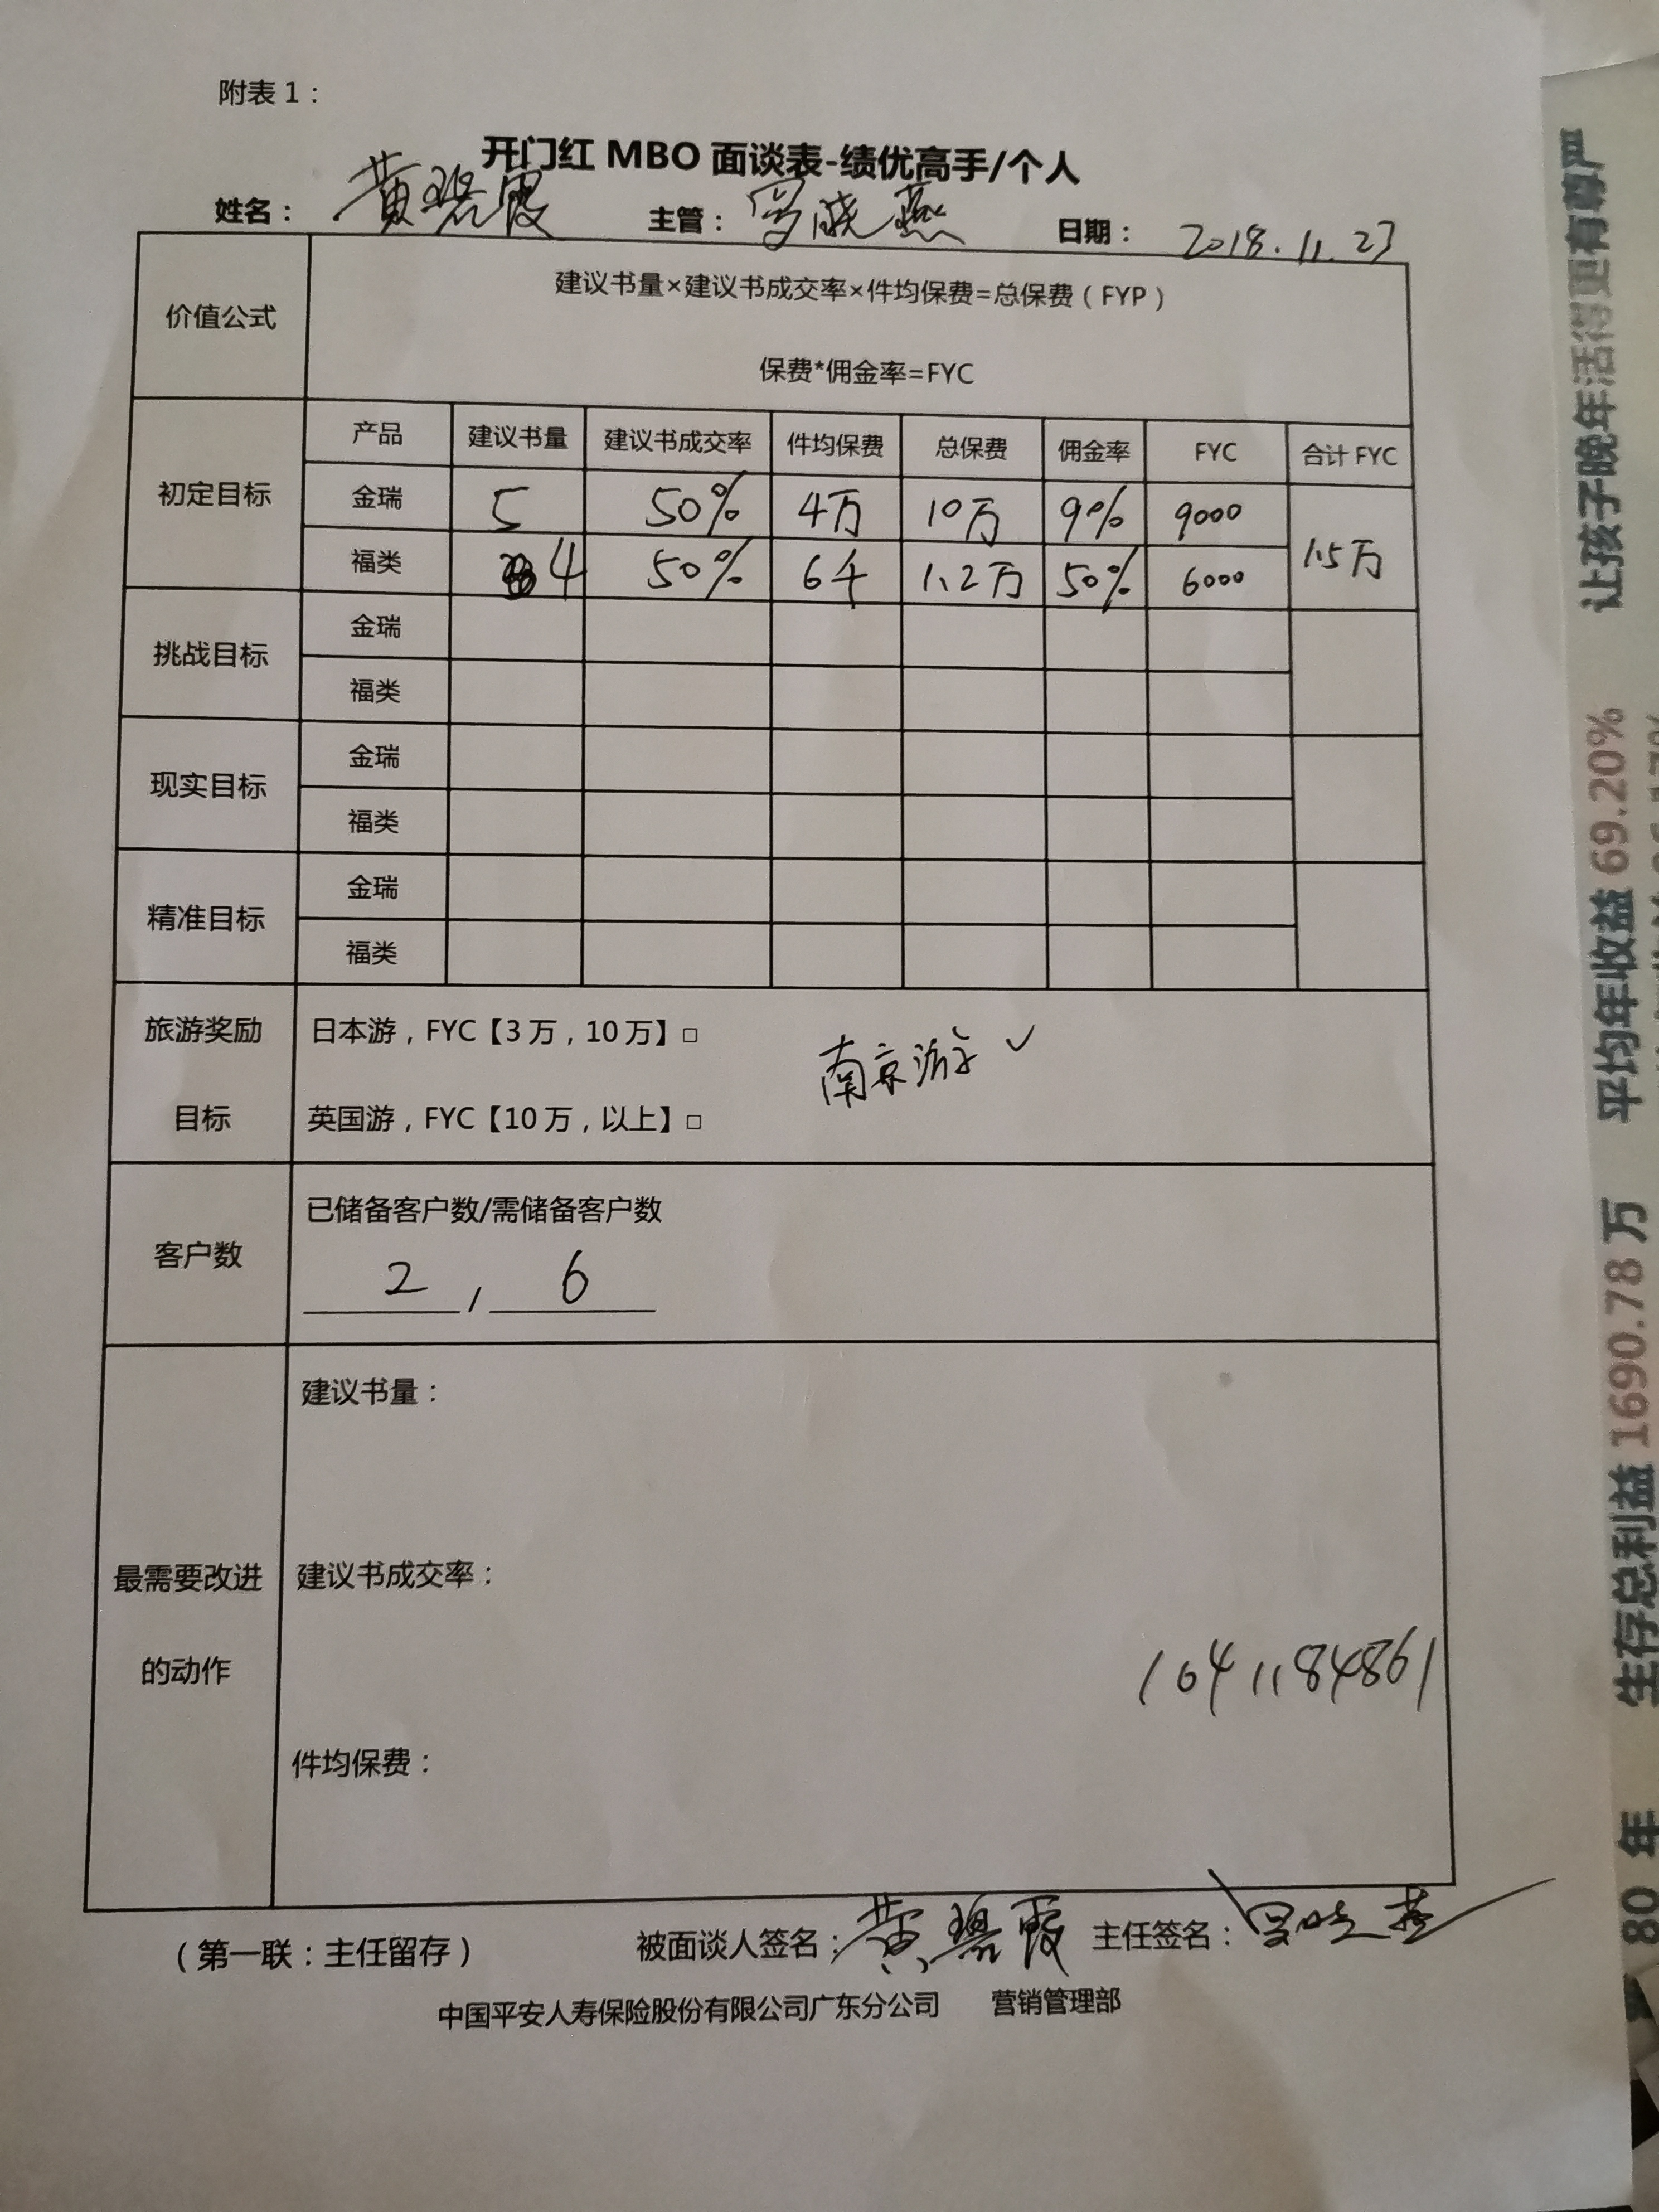 附表 1：
开门红 MBO 面谈表-绩优高手/个人
姓名： 黄碧霞 主管： 罗晓燕 日期： 2018.11.23
价值公式
建议书量×建议书成交率×件均保费=总保费（FYP）
保费*佣金率=FYC
初定目标 产品 建议书量 建议书成交率 件均保费 总保费 佣金率 FYC 合计 FYC
金瑞 5 50% 4万 10万 9% 9000 1.5万
福类 4 50% 6千 1.2万 50% 6000
挑战目标 金瑞
福类
现实目标 金瑞
福类
精准目标 金瑞
福类
旅游奖励目标
日本游，FYC【3 万，10 万】□
南京游 ✓
英国游，FYC【10 万，以上】□
客户数
已储备客户数/需储备客户数
2 / 6
最需要改进的动作
建议书量：
建议书成交率：
1041184861
件均保费：
（第一联：主任留存） 被面谈人签名：黄碧霞 主任签名：罗晓燕
中国平安人寿保险股份有限公司广东分公司 营销管理部
80 年 生存总利益 1690.78 万 平均年收益 69.20% 让孩子晚年活得更有尊严